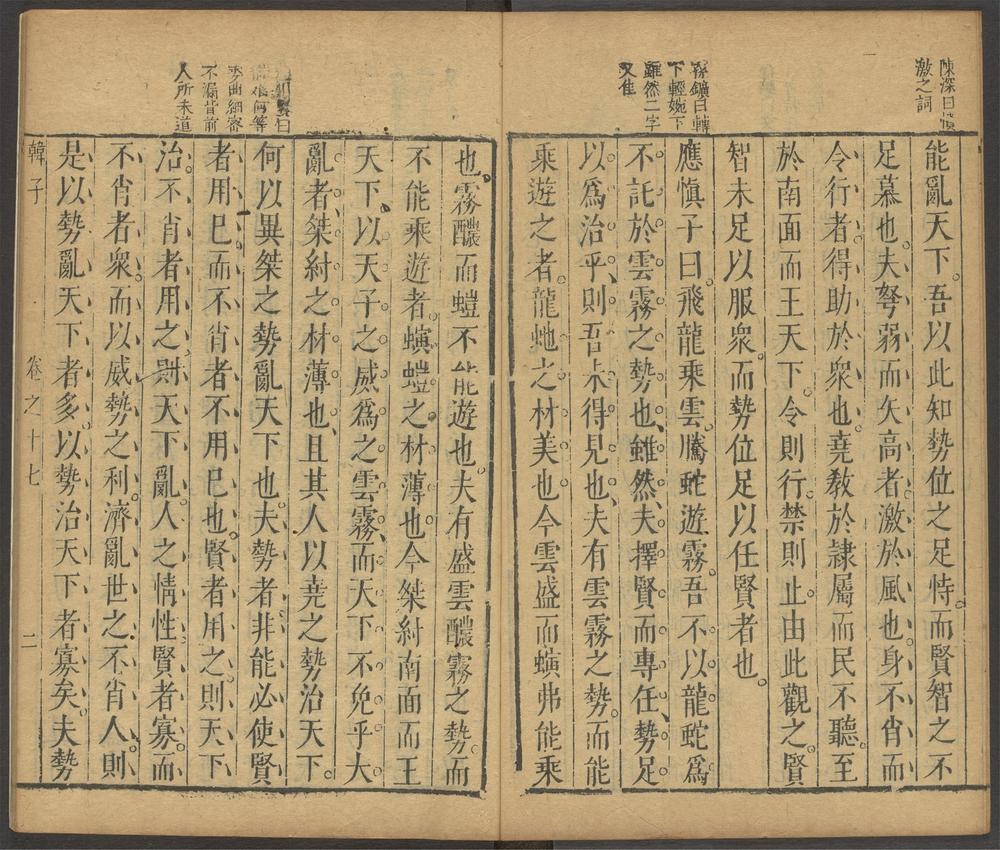 陳深曰慎
激之詞
能亂天下。吾以此知勢位之足恃。而賢智之不
足慕也。夫弩弱而矢高者。激於風也。身不肖而
令行者。得助於衆也。堯教於隸屬而民不聽。至
於南面而王天下。令則行。禁則止。由此觀之。賢
智未足以服衆。而勢位足以任賢者也。
孫鑛曰轉
下輕婉下
雖然二字
又佳
應慎子曰。飛龍乘雲。騰蛇遊霧。吾不以龍蛇爲
不託於雲霧之勢也。雖然。夫擇賢而專任勢。足
以爲治乎。則吾未得見也。夫有雲霧之勢。而能
乘遊之者。龍虵之材美也。今雲盛而螾弗能乘
也。霧醲而螘不能遊也。夫有盛雲醲霧之勢。而
不能乘遊者。螾螘之材薄也。今桀紂南面而王
天下。以天子之威爲之雲霧。而天下不免乎大
亂者。桀紂之材薄也。且其人以堯之勢治天下。
何以異桀之勢亂天下也。夫勢者。非能必使賢
委曲細密
不漏皆前
人所未道
者用巳。而不肖者不用巳也。賢者用之。則天下
治。不肖者用之。則天下亂。人之情性。賢者寡。而
不肖者衆。而以威勢之利。濟亂世之不肖人。則
是以勢亂天下者多。以勢治天下者寡矣。夫勢
韓子 卷之十七 二